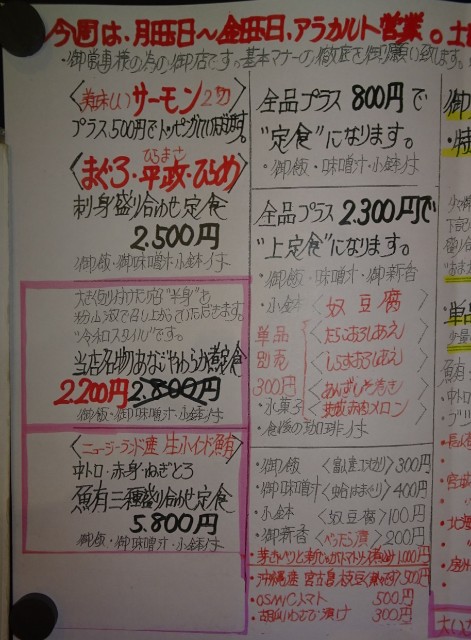 今週は、月曜日～金曜日、アラカルト営業。土
・御常連様の為の御店です。基本マナーの徹底を御願い致します。
〈美味しいサーモン2切〉
プラス500円でトッピングしていただけます。
〈まぐろ・平政・ひらめ〉
ひらまさ
刺身盛り合わせ定食
2.500円
御飯・御味噌汁・小鉢付
大きく切り付けた沼"半身"を
粉山椒で召し上がっていただきます。
"令和スタイル"です。
当店名物あなごやわらか煮定食
2.200円 2.800円
御飯・御味噌汁・小鉢付
〈ニュージーランド産 生インド鮪〉
中トロ・赤身・ねぎとろ
鮪三種盛り合わせ定食
5.800円
御飯・御味噌汁・小鉢付
全品プラス 800円で
"定食"になります。
・御飯・味噌汁・小鉢付
全品プラス 2.300円で
"上定食"になります。
・御飯・味噌汁・御新香
・小鉢〈奴豆腐〉
単品
別売
300円
〈たらこおろしあえ〉
〈しらすおろしあえ〉
〈あんずしそ巻き〉
・水菓子〈茨城赤肉メロン〉
・食後の珈琲付
・御飯〈富山産コシヒカリ〉300円
・御味噌汁〈蛤はまぐり〉400円
・小鉢〈奴豆腐〉100円
・御新香〈べったら漬〉200円
1.000円
・沖縄産 宮古島枝豆 500円
・OSMICトマト 500円
・胡瓜わさび漬け 300円
御
・特
下記
単品
少量
魚有
中トロ